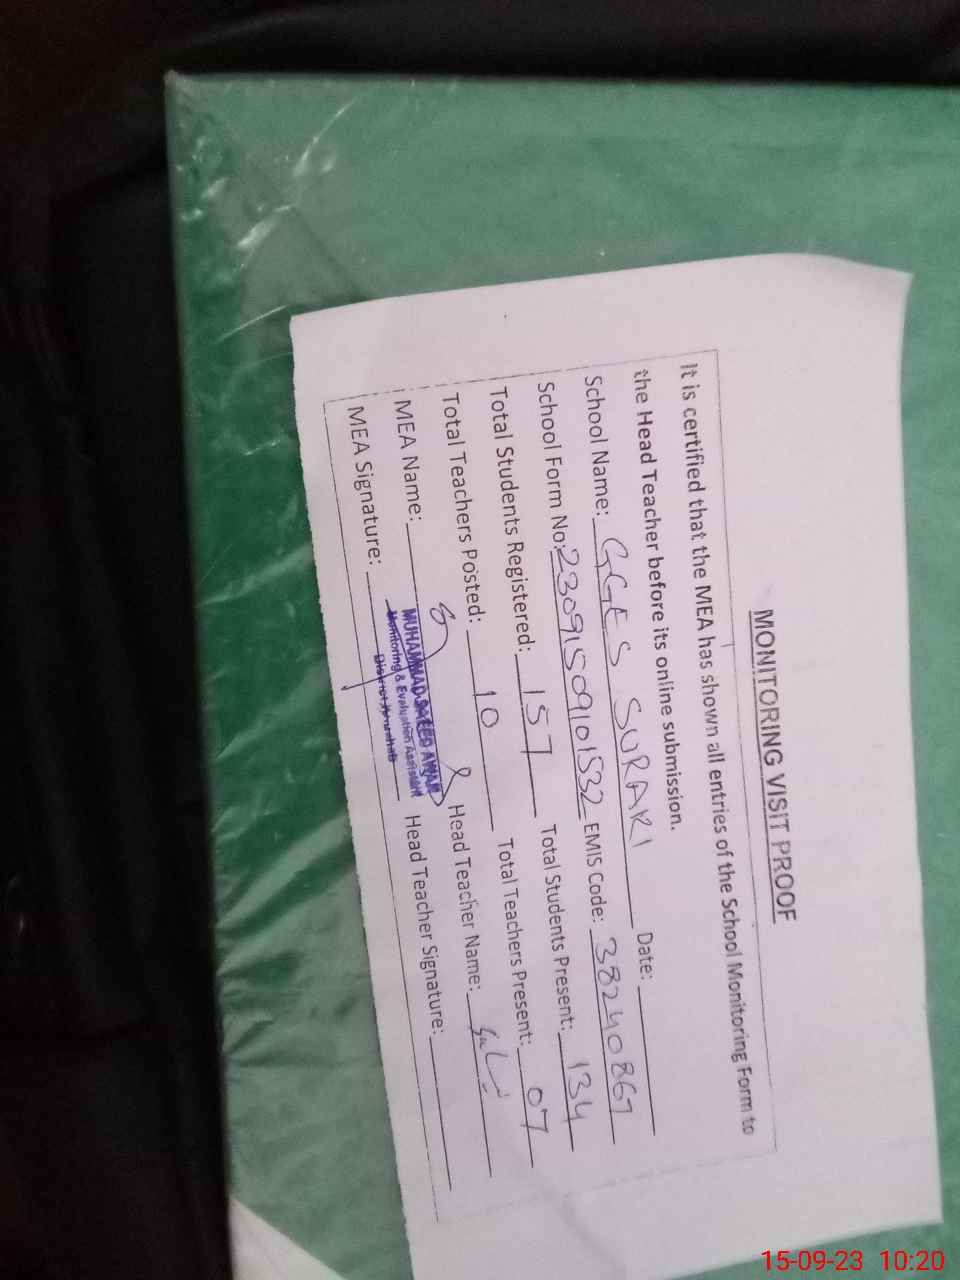 MONITORING VISIT PROOF
It is certified that the MEA has shown all entries of the School Monitoring Form to
the Head Teacher before its online submission.
School Name: GGES SURAKI Date:
School Form No: 23091509101532 EMIS Code: 38240867
Total Students Registered: 157 Total Students Present: 134
Total Teachers Posted: 10 Total Teachers Present: 07
MEA Name: Head Teacher Name:
MUHAMMAD SAEED AWAN
Monitoring & Evaluation Assistant
District
MEA Signature: Head Teacher Signature:
15-09-23 10:20